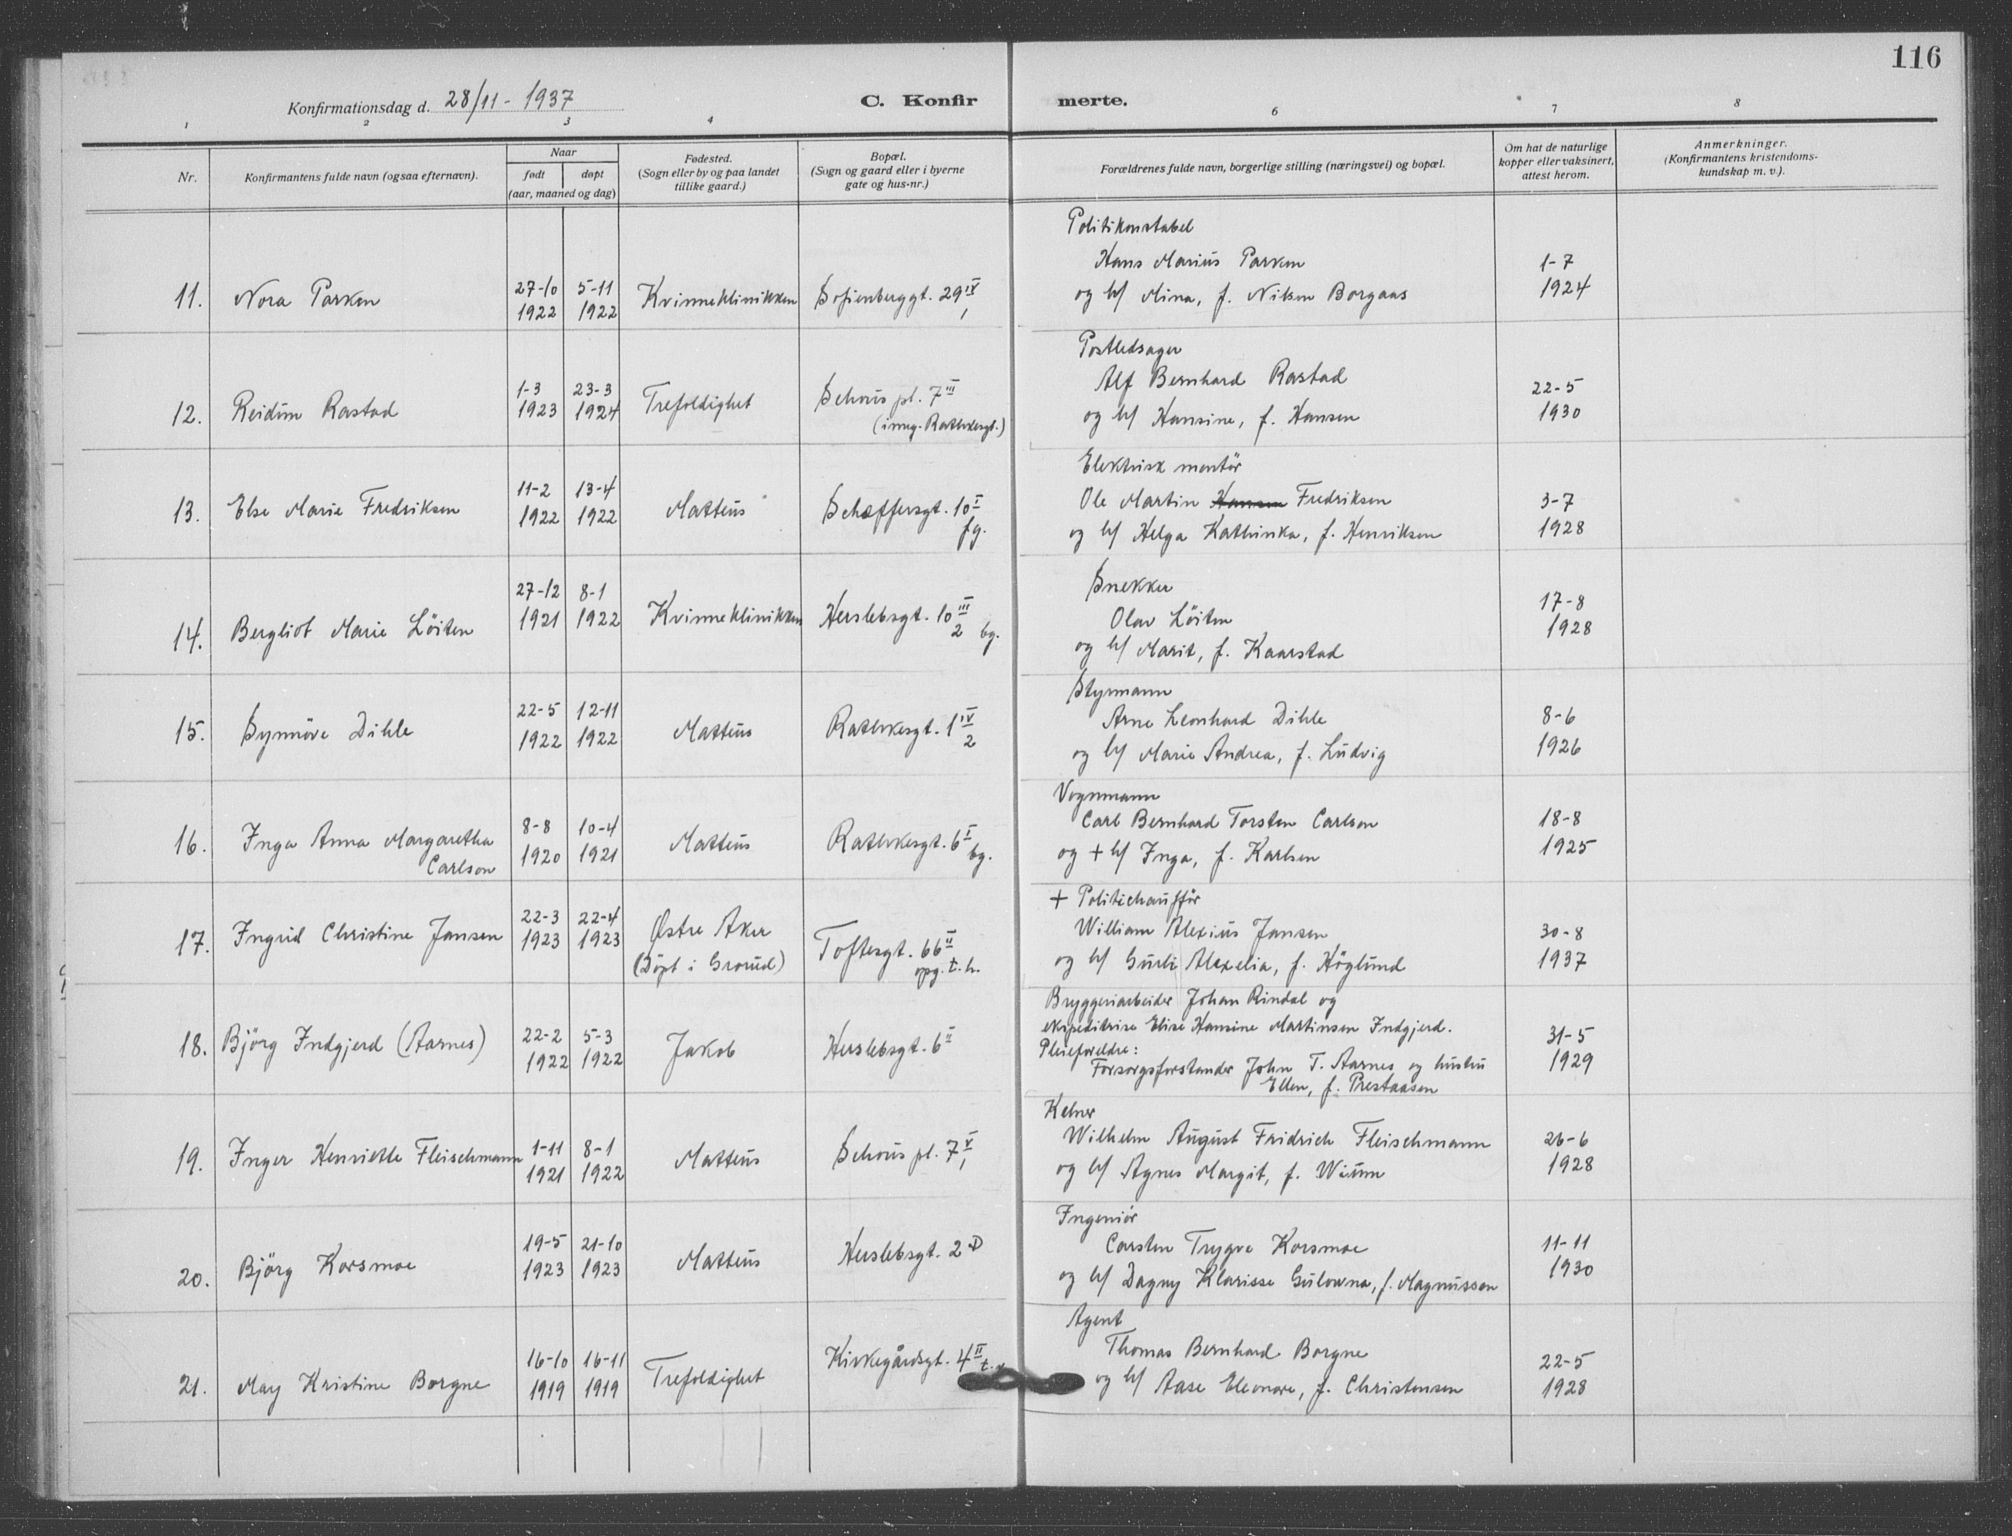 116
Konfirmationsdag d. 28/11 - 1937
C. Konfir merte.
1 2 3 4 6 7 8
Nr.
Konfirmantens fulde navn (ogsaa efternavn).
Naar
født døpt
(aar, maaned og dag)
Fødested.
(Sogn eller by og paa landet
tillike gaard.)
Bopæl.
(Sogn og gaard eller i byerne
gate og hus-nr.)
Forældrenes fulde navn, borgerlige stilling (næringsvei) og bopæl.
Om hat de naturlige
kopper eller vaksinert,
attest herom.
Anmerkninger.
(Konfirmantens kristendoms-
kundskap m. v.).
11. Nora Parken
27-10 1922
5-11 1922
Kvinneklinikken
Sofienberggt. 29 IV 1
Politikonstabel
Hans Marius Parken
og h/ Mina, f. Nilsen Borgaas
1-7
1924
12. Reidun Rastad
1-3 1923
23-3 1924
Trefoldighet
Schous pl. 7 III
(inng. Rathkesgt.)
Postledsager
Alf Bernhard Rastad
og h/ Hansine, f. Hansen
22-5
1930
13. Else Marie Fredriksen
11-2 1922
13-4 1922
Matteus
Schæffersgt. 10 I
fg.
Elektrisk montör
Ole Martin Hansen Fredriksen
og h/ Helga Kathinka, f. Henriksen
3-7
1928
14. Bergliot Marie Löiten
27-12 1921
8-1 1922
Kvinneklinikken
Herslebsgt. 10 III 2 bg.
Snekker
Olav Löiten
og h/ Marit, f. Kaarstad
17-8
1928
15. Synnöve Dihle
22-5 1922
12-11 1922
Matteus
Rathkesgt. 1 IV 2
Styrmann
Arne Leonhard Dihle
og h/ Marie Andrea, f. Ludvig
8-6
1926
16. Inga Anna Margaretha
Carlson
8-8 1920
10-4 1921
Matteus
Rathkesgt. 6 I bg.
Vognmann
Carl Bernhard Torsten Carlson
og + h/ Inga, f. Karlsen
18-8
1925
17. Ingrid Christine Jansen
22-3 1923
22-4 1923
Østre Aker
(Döpt i Grorud)
Toftesgt. 66 II
opg. t. h.
+ Politichaufför
William Alexius Jansen
og h/ Gurli Alexelia, f. Höglund
30-8
1937
18. Björg Indgjerd (Aarnes)
22-2 1922
5-3 1922
Jakob
Herslebsgt. 6 II
Bryggeriarbeider Johan Rindal og
ekspeditrise Elise Hansine Martinsen Indgjerd.
Pleieforeldre:
Forsorgsforstander John T. Aarnes og hustru
Ellen, f. Prestaasen
31-5
1929
19. Inger Henriette Fleischmann
1-11 1921
8-1 1922
Matteus
Schous pl. 7 V 1
Kelner
Wilhelm August Fridrich Fleischmann
og h/ Agnes Margit, f. Wium
26-6
1928
20. Björg Korsmoe
19-5 1923
21-10 1923
Matteus
Herslebsgt. 2 D
Ingeniör
Carsten Trygve Korsmoe
og h/ Dagny Klarisse Gulowna, f. Magnusson
11-11
1930
21. May Kristine Borgne
16-10 1919
16-11 1919
Trefoldighet
Kirkegårdsgt. 4 II
Agent
Thomas Bernhard Borgne
og h/ Aase Eleonore, f. Christensen
22-5
1928